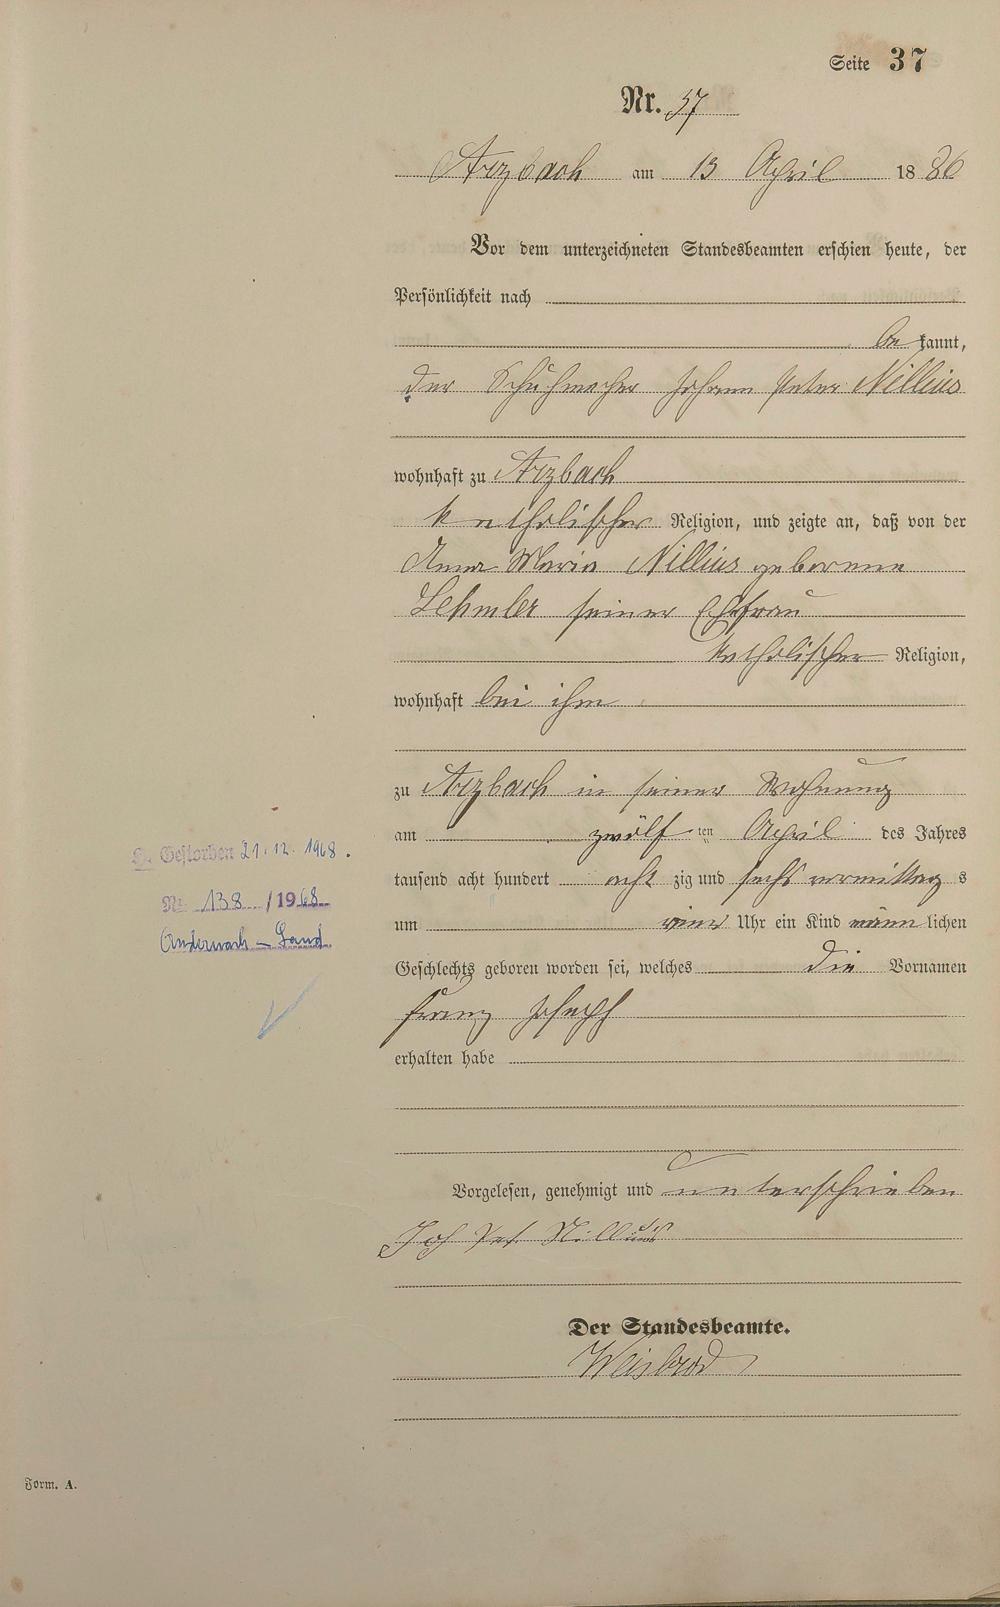 Seite 37
Nr. 37
Arzbach am 13 April 1886
Vor dem unterzeichneten Standesbeamten erschien heute, der
Persönlichkeit nach
bekannt,
der Schuhmacher Johann Peter Nillius
wohnhaft zu Arzbach
katholischer Religion, und zeigte an, daß von der
Anna Maria Nillius geborenen
Lehmler seiner Ehefrau
katholischer Religion,
wohnhaft bei ihm
zu Arzbach in seiner Wohnung
am zwölf ten April des Jahres
tausend acht hundert acht zig und sechs vormittags
um Uhr ein Kind männlichen
Geschlechts geboren worden sei, welches die Vornamen
Franz Joseph
erhalten habe
Vorgelesen, genehmigt und unterschrieben
Joh Pet Nillius
Der Standesbeamte.
Weisbrod
Gestorben 21.12.1968.
Nr. 138/1968
Andernach-Land
Form. A.